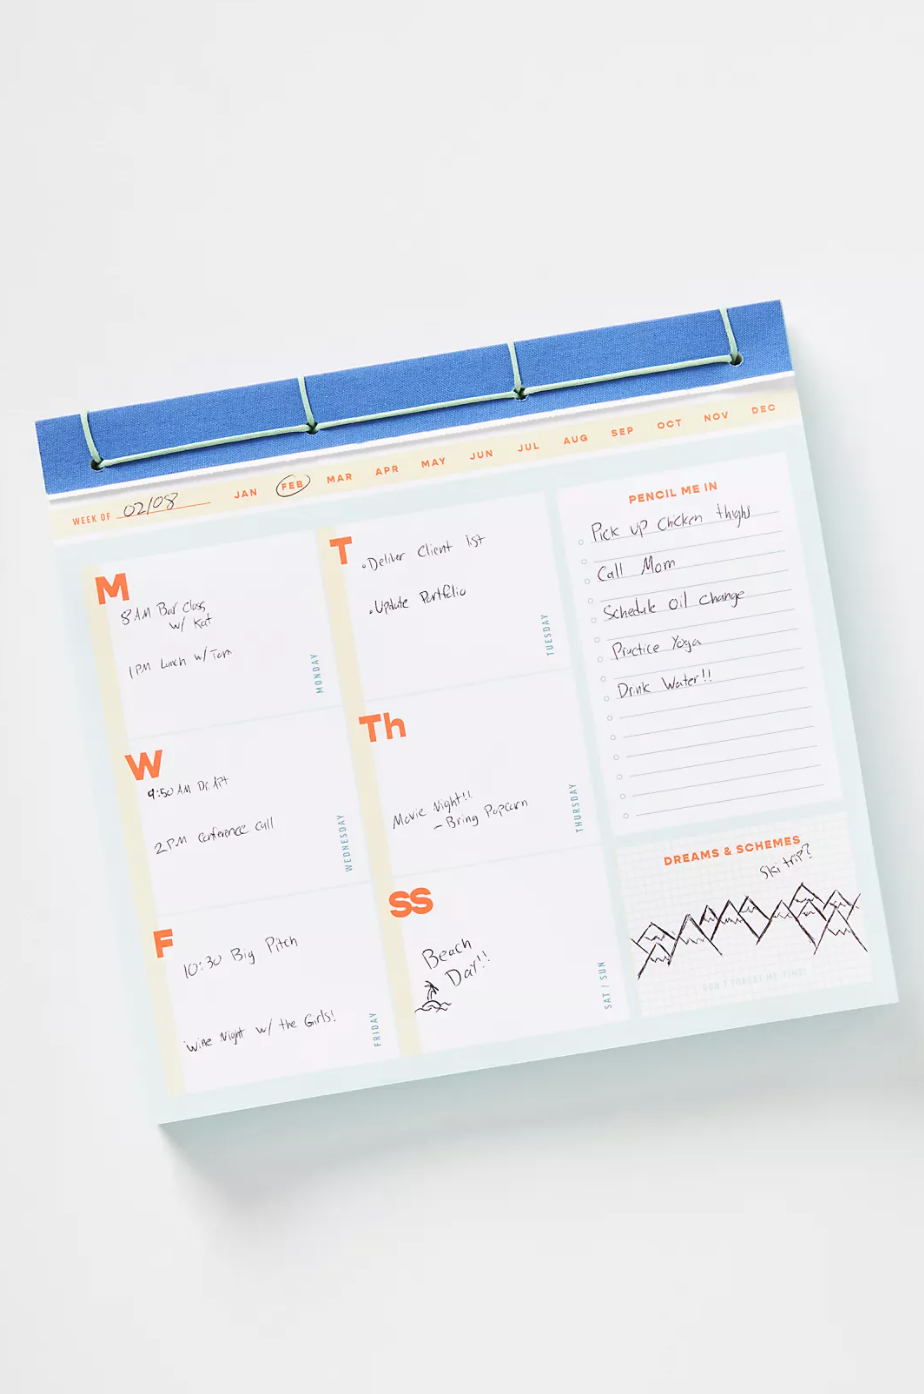 WEEK OF 02/08 JAN FEB MAR APR MAY JUN JUL AUG SEP OCT NOV DEC
M
8 AM Bar Class
w/ Kat
1 PM Lunch w/ Tom
MONDAY
T
Deliver Client 1st
Update Portfolio
TUESDAY
W
9:50 AM Dr. Apt
2 PM Conference Call
WEDNESDAY
Th
Movie Night!!
- Bring Popcorn
THURSDAY
F
10:30 Big Pitch
Wine Night w/ the Girls!
FRIDAY
SS
Beach
Day!!
SAT / SUN
PENCIL ME IN
Pick up chicken thighs
Call Mom
Schedule oil change
Practice Yoga
Drink Water!!
DREAMS & SCHEMES
Ski trip?
DON'T FORGET ME TIME!